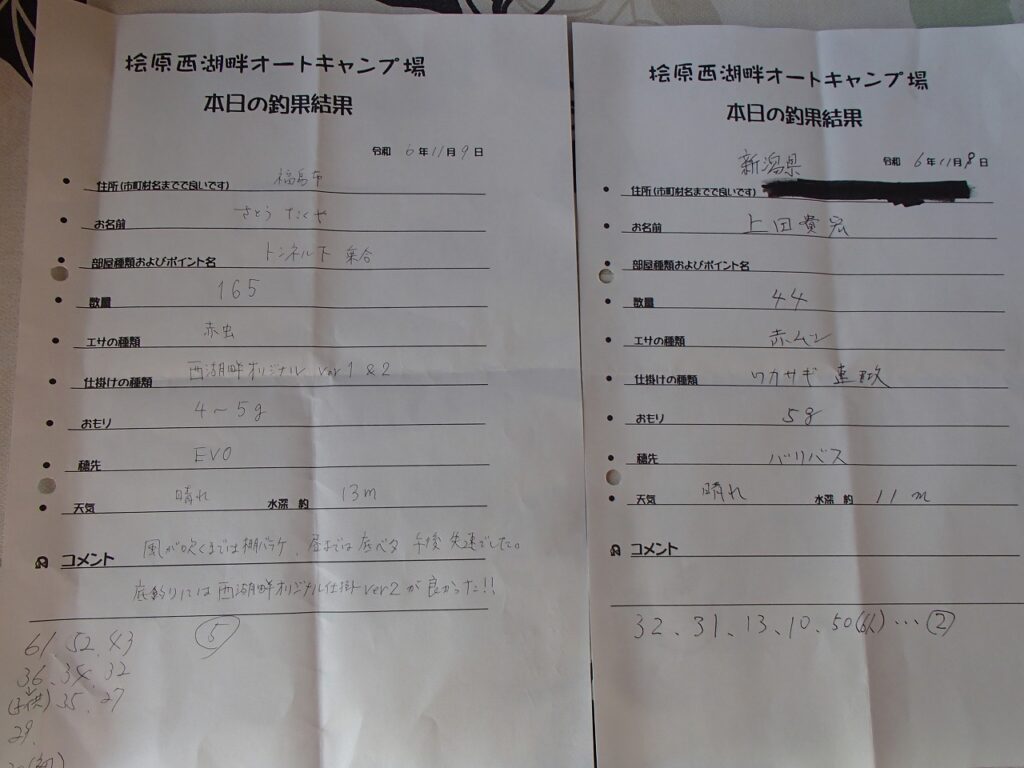 桧原西湖畔オートキャンプ場
本日の釣果結果
令和 6年11月9日
住所(市町村名までで良いです) 福島市
お名前 さとう たくや
部屋種類およびポイント名 トンネル下 乗合
数量 165
エサの種類 赤虫
仕掛けの種類 西湖畔オリジナル ver1&2
おもり 4〜5g
穂先 EVO
天気 晴れ 水深 約 13m
コメント 風が吹くまでは棚バラケ、昼までは底ベタ 午後 失速でした。
底釣りには西湖畔オリジナル仕掛ver2が良かった!!
61、52、43 ⑤
36、34、32
(子供) 35、27
29、
桧原西湖畔オートキャンプ場
本日の釣果結果
令和 6年11月8日
新潟県
住所(市町村名までで良いです)
お名前 上田貴宏
部屋種類およびポイント名
数量 44
エサの種類 赤ムシ
仕掛けの種類 ワカサギ
おもり 5g
穂先 バリバス
天気 晴れ 水深 約 11m
コメント
32、31、13、10、50 … ②